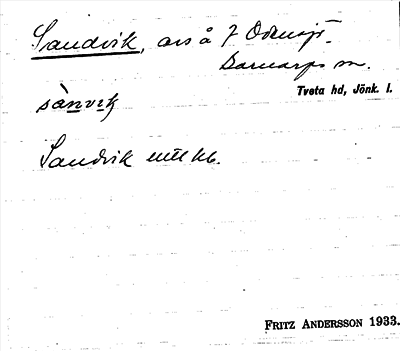 Sandvik, avs å 7 Odensjö
Barnarps sn.
Tveta hd, Jönk. l.
sànvik
Sandvik
FRITZ ANDERSSON 1933.